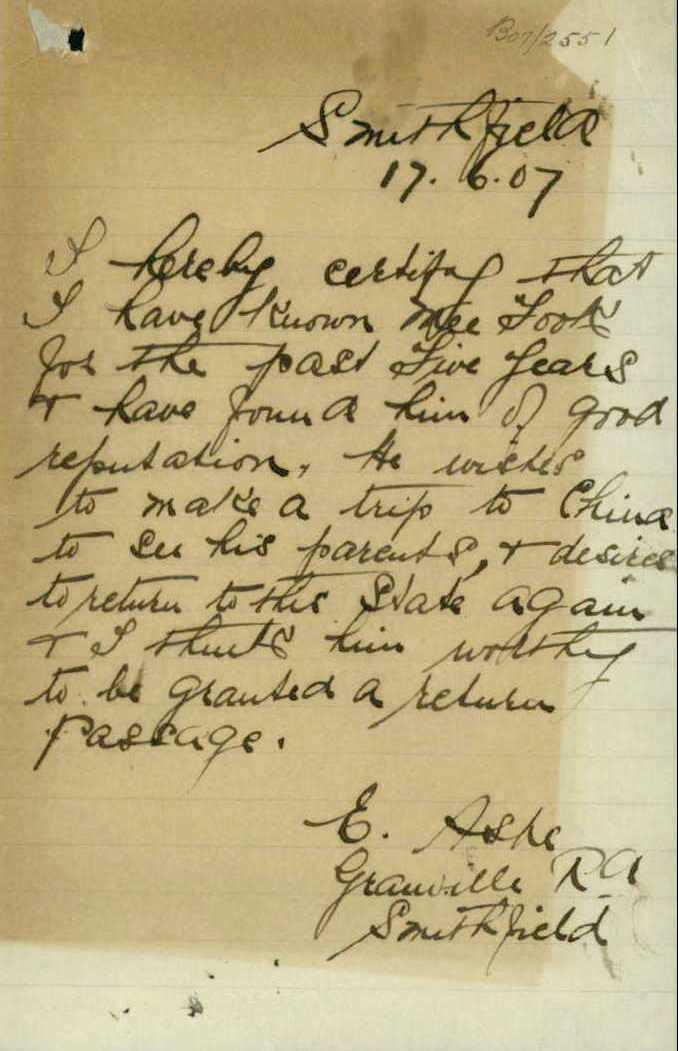 B07/2551
Smithfield
17. 6.07
I hereby certify that
I have known Mee Fook
for the past Five years
& have found him of good
reputation. He wishes
to make a trip to China
to see his parents, & desires
to return to this State again
& I think him worthy
to be granted a return
passage.
E. Ashe
Granville Rd
Smithfield